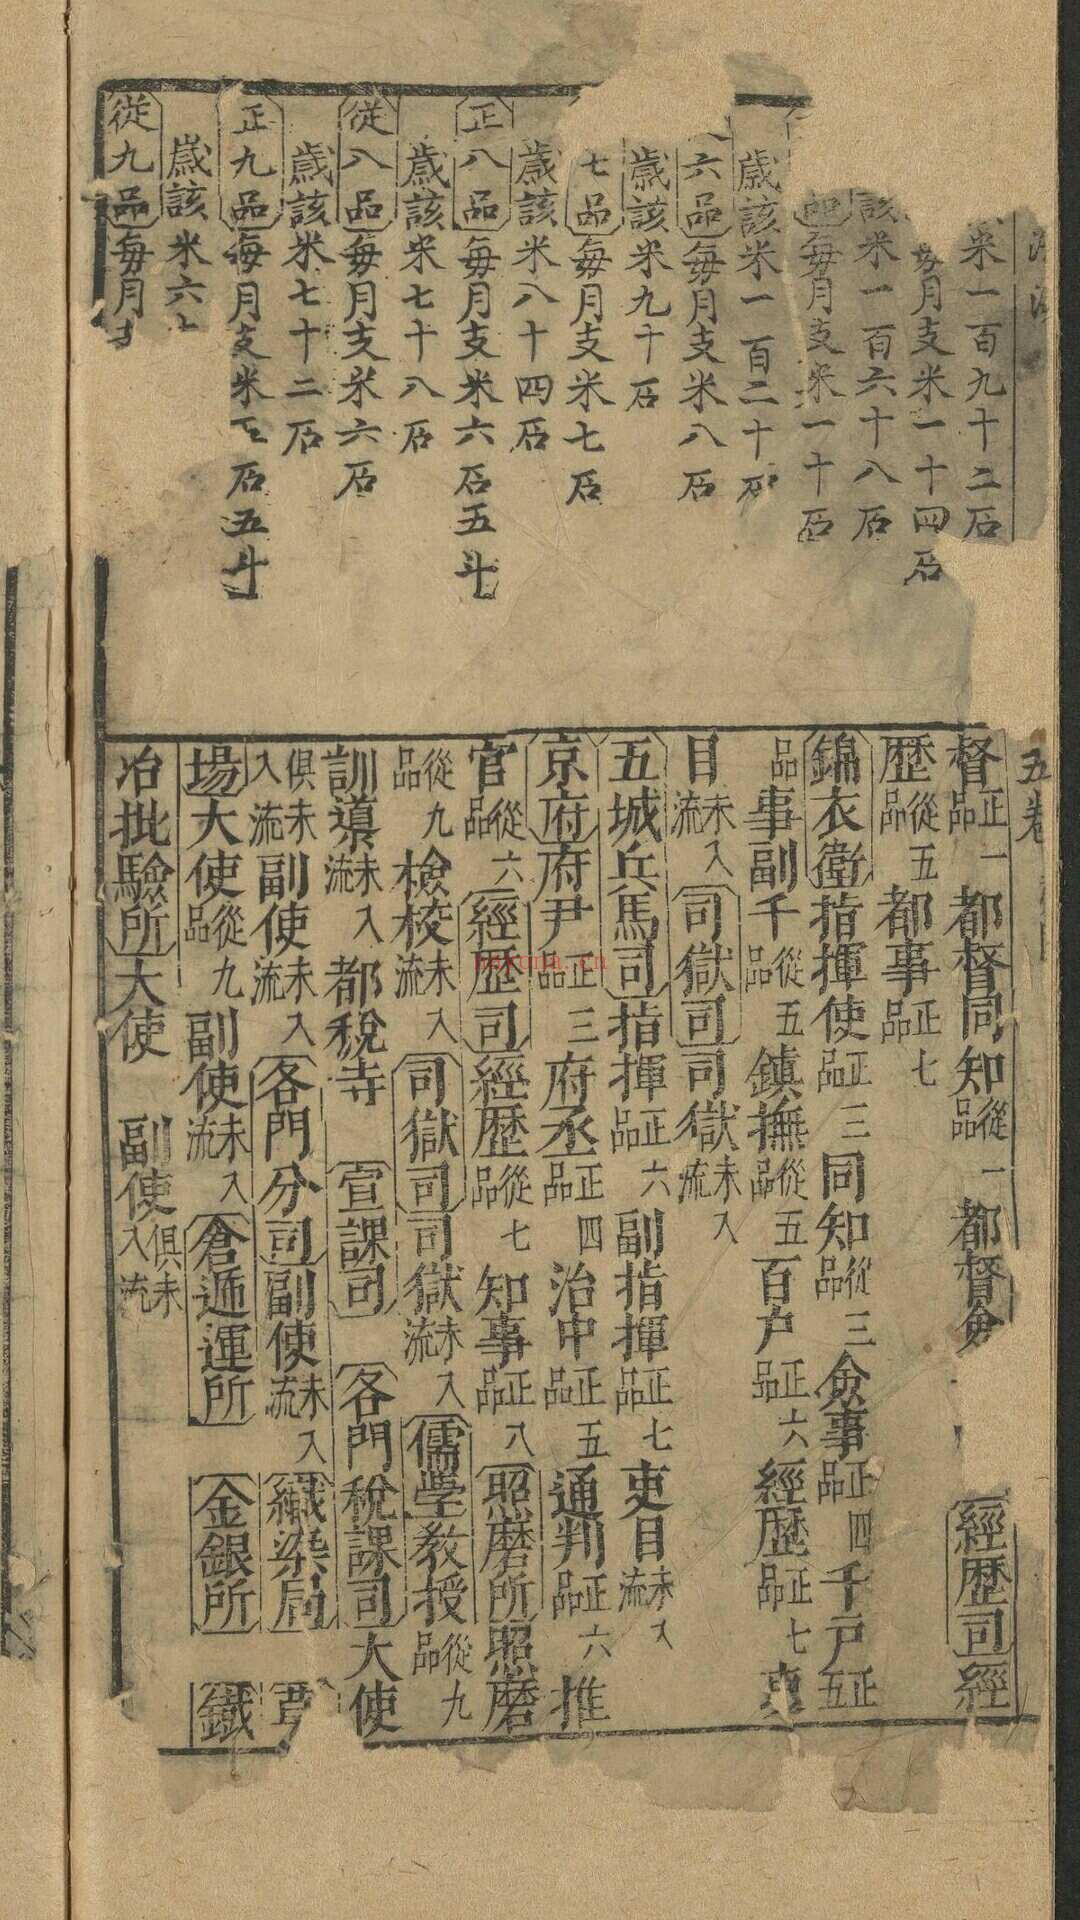 米一百九十二石
月支米一十四石
該米一百六十八石
品每月支米一十石
歲該米一百二十石
六品每月支米八石
歲該米九十石
七品每月支米七石
歲該米八十四石
正八品每月支米六石五斗
歲該米七十八石
從八品每月支米六石
歲該米七十二石
正九品每月支米五石五斗
歲該米六十
從九品每月支
五卷
督正一品都督同知從一品都督僉 經歷司經
歷從五品都事正七品
錦衣衛指揮使正三品同知從三品僉事正四品千戶正五
品事副千從五品鎮撫從五品百户正六品經歷正七品吏
目未入流司獄司司獄未入流
五城兵馬司指揮正六品副指揮正七品吏目未入流
京府府尹正三品府丞正四品治中正五品通判正六品推
官從六品經歷司經歷從七品知事正八品照磨所照磨
從九品檢校未入流司獄司司獄未入流儒學教授從九品
訓導未入流都稅寺 宣課司 各門稅課司大使
俱未入流副使未入流各門分司副使未入流織染局
場大使從九品副使未入流倉遞運所 金銀所 鐵
冶批驗所大使 副使俱未入流
hexuna.cn